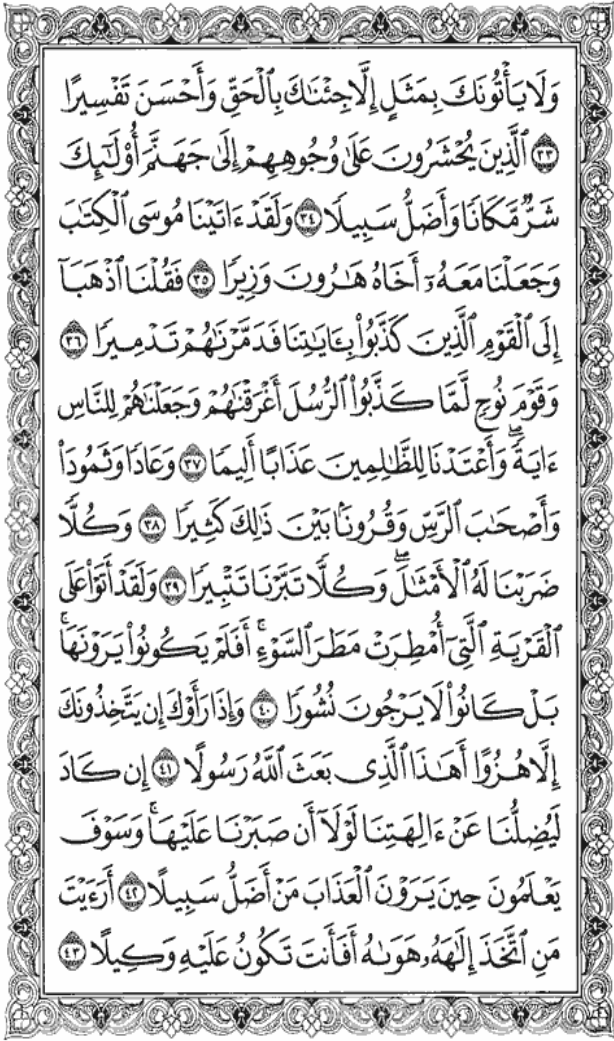 وَلَا يَأْتُونَكَ بِمَثَلٍ إِلَّا جِئْنَٰكَ بِٱلْحَقِّ وَأَحْسَنَ تَفْسِيرًا
٣٣ ٱلَّذِينَ يُحْشَرُونَ عَلَىٰ وُجُوهِهِمْ إِلَىٰ جَهَنَّمَ أُوْلَٰٓئِكَ
شَرٌّ مَّكَانًا وَأَضَلُّ سَبِيلًا ٣٤ وَلَقَدْ ءَاتَيْنَا مُوسَى ٱلْكِتَٰبَ
وَجَعَلْنَا مَعَهُۥٓ أَخَاهُ هَٰرُونَ وَزِيرًا ٣٥ فَقُلْنَا ٱذْهَبَآ
إِلَى ٱلْقَوْمِ ٱلَّذِينَ كَذَّبُوا۟ بِـَٔايَٰتِنَا فَدَمَّرْنَٰهُمْ تَدْمِيرًا ٣٦
وَقَوْمَ نُوحٍ لَّمَّا كَذَّبُوا۟ ٱلرُّسُلَ أَغْرَقْنَٰهُمْ وَجَعَلْنَٰهُمْ لِلنَّاسِ
ءَايَةً ۖ وَأَعْتَدْنَا لِلظَّٰلِمِينَ عَذَابًا أَلِيمًا ٣٧ وَعَادًا وَثَمُودَا۟
وَأَصْحَٰبَ ٱلرَّسِّ وَقُرُونًۢا بَيْنَ ذَٰلِكَ كَثِيرًا ٣٨ وَكُلًّا
ضَرَبْنَا لَهُ ٱلْأَمْثَٰلَ ۖ وَكُلًّا تَبَّرْنَا تَتْبِيرًا ٣٩ وَلَقَدْ أَتَوْا۟ عَلَى
ٱلْقَرْيَةِ ٱلَّتِىٓ أُمْطِرَتْ مَطَرَ ٱلسَّوْءِ ۚ أَفَلَمْ يَكُونُوا۟ يَرَوْنَهَا ۚ
بَلْ كَانُوا۟ لَا يَرْجُونَ نُشُورًا ٤٠ وَإِذَا رَأَوْكَ إِن يَتَّخِذُونَكَ
إِلَّا هُزُوًا أَهَٰذَا ٱلَّذِى بَعَثَ ٱللَّهُ رَسُولًا ٤١ إِن كَادَ
لَيُضِلُّنَا عَنْ ءَالِهَتِنَا لَوْلَآ أَن صَبَرْنَا عَلَيْهَا ۚ وَسَوْفَ
يَعْلَمُونَ حِينَ يَرَوْنَ ٱلْعَذَابَ مَنْ أَضَلُّ سَبِيلًا ٤٢ أَرَءَيْتَ
مَنِ ٱتَّخَذَ إِلَٰهَهُۥ هَوَىٰهُ أَفَأَنتَ تَكُونُ عَلَيْهِ وَكِيلًا ٤٣